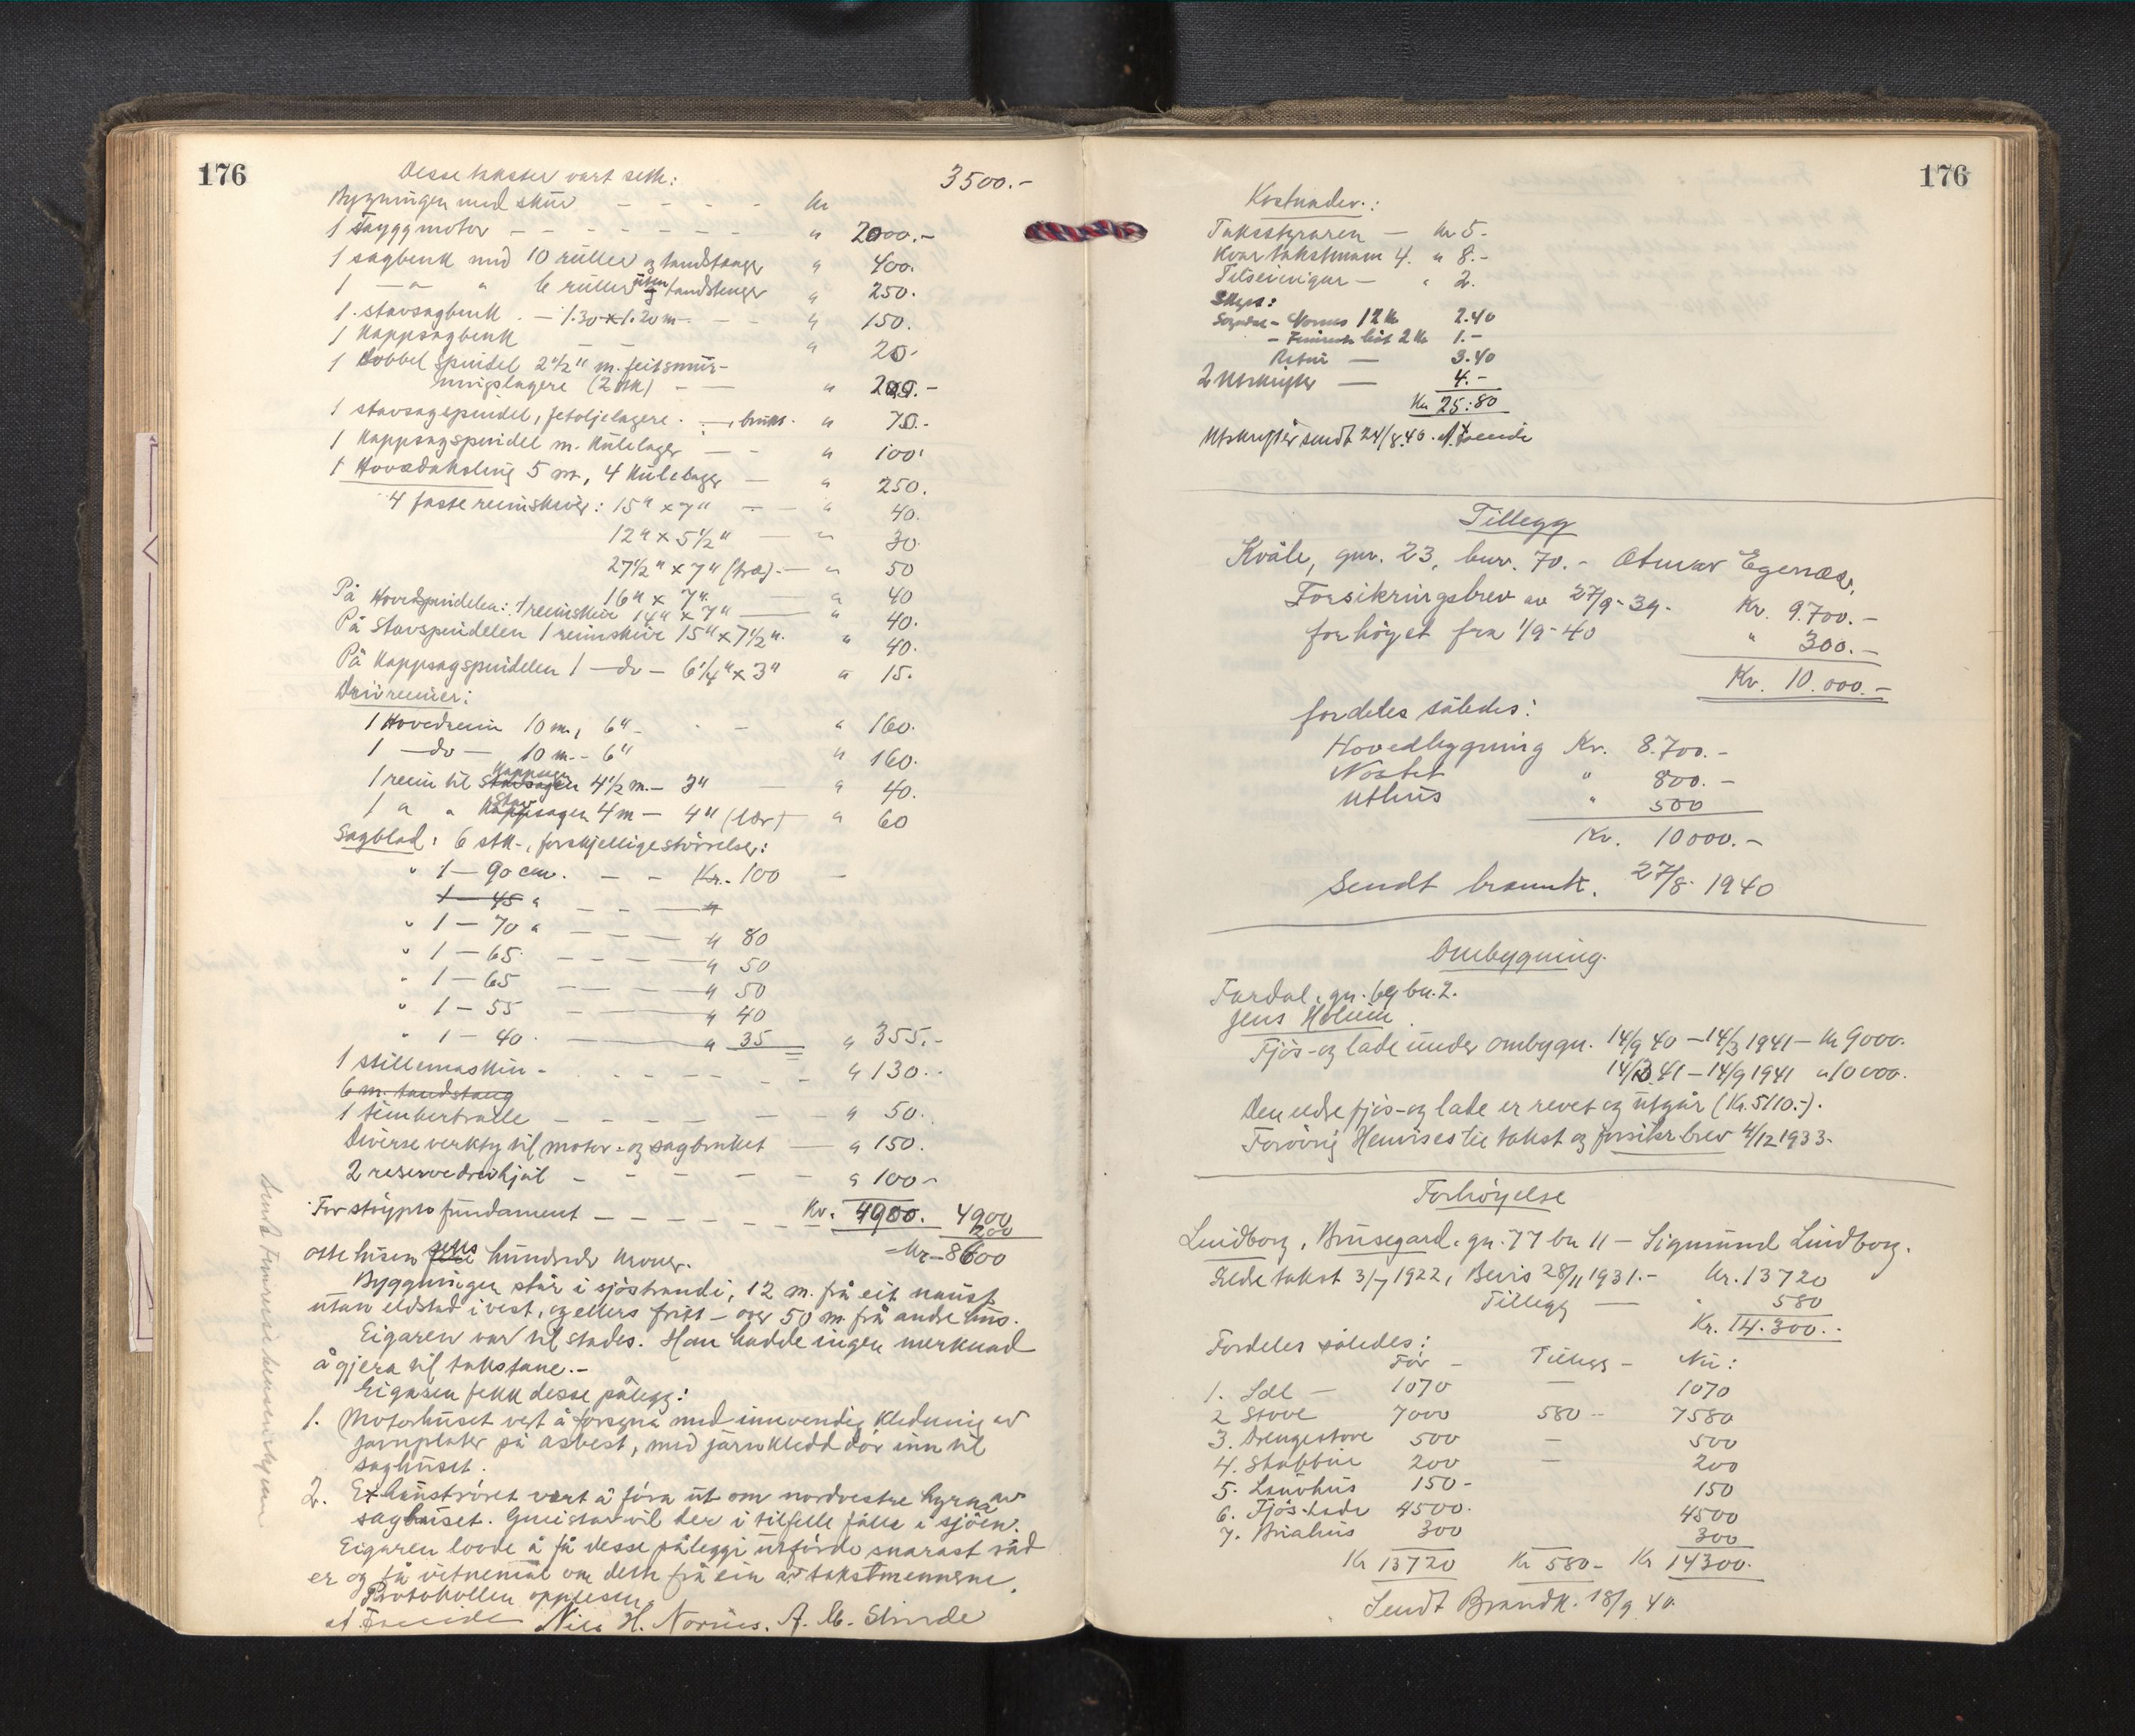 176
Desse takster vart sette:
Bygningen med skur - - - - kr 3500.-
1 Snyggmotor - - - - - - - " 2000.-
1 sagbenk med 10 ruller og tandstenger " 400.
1 -"- " 6 ruller uten tandstenger " 250.
1 stavsagbenk - 1.30 x 1.20 m - - - " 150.
1 Kappsagbenk - - " 20.
1 dobbel spindel 2 1/2" m. feitsmur-
ningslagere (2 stk) - - " 200.-
1 stavsagspindel, fetoljelagere. -, brukt. " 70.-
1 Kappsagspindel m. Kulelager - - " 100.
1 Hovedaksling 5 m, 4 Kulelager - " 250.
4 faste reimskiver: 15" x 7" - - " 40.
12" x 5 1/2" - " 30.
27 1/2" x 7" (tre) - " 50
16" x 7" - " 40
På Hovedspindelen: 1 reimskive 14" x 7" " 40.
På Stavspindelen 1 reimskive 15" x 7 1/2". " 40.
På Kappsagspindelen 1 -do- 6 1/4" x 3" " 15.
Drivreimer:
1 Hovedreim 10 m, 6" - - " 160.
1 -do- 10 m - 6" " 160.
1 reim til Stavsagen Kappsagen 4 1/2 m - 3" - " 40.
1 " " Kappsagen Stav 4 m - 4" (lær) - " 60
Sagblad: 6 stk., forskjellige størrelser:
" 1 - 90 cm. - - Kr. 100 -
1 - 45 " - - "
" 1 - 70 " - - - " 80
" 1 - 65. - - - - " 50
" 1 - 65 - - - " 50
" 1 - 55 - - " 40
" 1 - 40. - " 35 " 355.-
1 stillemaskin - - - - - - - " 130.-
6 m. tandstang
1 tømbertralle - - - - - - " 50.
Diverse verkty til motor- og sagbruket - " 150.
2 reservedrivhjul - - - - - " 100-
For støypte fundament - - - - - - Kr. 4900. 4900
200
Kr. 8600
otte tusen seks hundrede kroner.
Byggningen står i sjøstrandi, 12 m. frå eit naust
utan eldstad i vest, og ellers fritt - over 50 m frå andre hus.
Eigaren var til stades. Han hadde ingen merknad
å gjera til takstane.-
Eigaren fekk desse pålegg:
1. Motorhuset vert å forsyna med innvendig kledning av
jarnplater på asbest, med jarnkledd dør inn til
saghuset.
2. Exhaustrøret vert å føra ut om nordvestre hyrna av
saghuset. Gneistar vil der i tilfelle falla i sjøen.
Eigaren lovde å få desse påleggi utførde snarast råd
er og få vitnemål om dette frå ein av takstmennene.
Protokollen opplesen.
Nils H. Nornes. A. M. Slinde
176
Kostnader:
Takststyraren - Kr 5.-
Kvar takstmann 4. " 8.-
Tilseiingar - " 2.
Skyss:
Sogndal - Nornes 12 km 2.40
- båt 2 km 1.-
Retur - 3.40
2 Utskrifter - 4.-
Kr 25:80
Utskrifter sendt 24/8.40.
Tillegg
Kvåle, gnr. 23, bnr. 70. - Otmar Egenæs,
Forsikringsbrev av 27/9-39. Kr. 9.700.-
forhöyet fra 1/9-40 " 300.-
Kr. 10.000.-
fordeles således:
Hovedbygning Kr. 8.700.-
Nöstet " 800.-
Uthus " 500
Kr. 10000.-
Sendt brannk. 27/8. 1940
Ombygning.
Fardal, gn. 69 bn. 2.
Jens Holum.
Fjös- og lade under ombygn. 14/9 40 - 14/3 1941 - kr 9000.
14/3 41 - 14/9 1941 " 10000.
Den eldre fjös- og lade er revet og utgår (Kr. 5110.-).
Forövrig Henvises til takst og forsikr.brev 4/12 1933.
Forhöyelse
Lindborg, Brusegard. gn. 77 bn 11 - Sigmund Lindborg.
Elde takst 3/7 1922, Bevis 28/11 1931.- Kr. 13720
Tillegg - " 580
Kr. 14.300.-
Fordeles således:
För - Tillegg - Nu:
1. Ldl - 1070 - 1070
2 Stove 7000 580 - 7580
3. Drengestove 500 - 500
4. Stabbur 200 - 200
5. Lauvhus 150 - 150
6. Fjös-Lade 4500. 4500
7. 300 300
Kr 13720 Kr 580 - Kr 14300.
Sendt Brandk. 18/9 40.